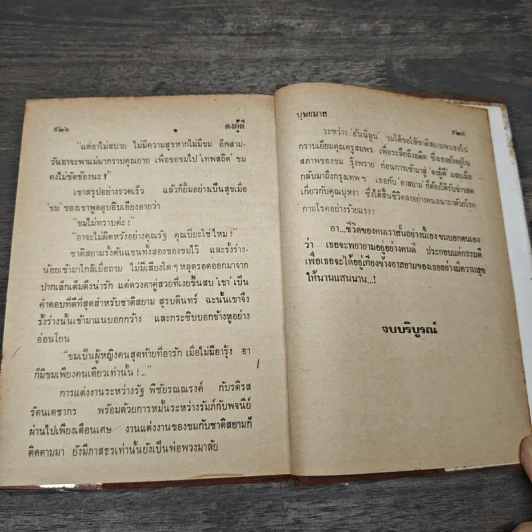 ๕๒๖ ดงผู้ดี
"แต่อาไม่สบาย ไม่มีความสุขหากไม่มีขม อีกสาม-
วันอาจะพาแม่มากราบคุณยาย เพื่อขอขมไป 'เทพสถิต' ขม
คงไม่ขัดข้องนะ!"
เขาสรุปอย่างรวดเร็ว แล้วก็ยิ้มอย่างเป็นสุขเมื่อ
'ขม' ของเขาพูดอุบอิบเอียงอายว่า
"ขมไม่ทราบค่ะ!"
"อาจะไม่ผิดหวังอย่างคุณรัฐ คุณปิยะใช่ไหม!"
ชาติสยามรั้งต้นแขนทั้งสองของขมไว้ และรั้งร่าง-
น้อยเข้ามาใกล้เมื่อถาม ไม่มีเสียงใด ๆ หลุดรอดออกมาจาก
ปากเล็กเต็มตึงน่ารัก แต่ดวงตาคู่สวยที่เงยขึ้นสบ 'เขา' เป็น
คำตอบที่ดีที่สุดสำหรับชาติสยาม สุรบดินทร์ ฉะนั้นเขาจึง
รั้งร่างนั้นเข้ามาแนบอกกว้าง และกระซิบบอกข้างหูอย่าง
อ่อนโยน
"ขมเป็นผู้หญิงคนสุดท้ายที่อารัก เมื่อไม่มีอารุ้ง อา
ก็มีขมเพียงคนเดียวเท่านั้น!.."
การแต่งงานระหว่างรัฐ พิชัยรณณรงค์ กับรติรส
รัตนเดชากร พร้อมด้วยการหมั้นระหว่างรัมภ์กับพจนีย์
ผ่านไปเพียงเดือนเศษ งานแต่งงานของขมกับชาติสยามก็
ติดตามมา ยังมีภาสธรเท่านั้นยังเป็นพ่อพวงมาลัย
บุษยมาส ๕๒๗
ระหว่าง 'ฮันนีมูน' ขมได้ขอให้ชาติสยามพาเธอไป
กราบเยี่ยมคุณครูสมพร เพื่อระลึกถึงอดีต ซึ่งเธอยังอยู่ใน
สภาพของขม รุ้งพราย ก่อนการเข้ามาสู่ 'ดงผู้ดี' และเมื่อ
กลับมาถึงกรุงเทพฯ เธอกับ 'อาสยาม' ก็ต้องได้รับข่าวสลด
เกี่ยวกับคุณบุหงา ซึ่งได้สิ้นชีวิตลงอย่างคนอนาถาด้วยโรค
กามโรคอย่างร้ายแรง!
อา...ชีวิตของคนเราสั้นอย่างนี้เอง ขมบอกตนเอง
ว่า เธอจะพยายามอยู่อย่างคนดี ประกอบแต่กรรมดี
เพื่อเธอจะได้อยู่เคียงข้างอาสยามของเธออย่างมีความสุข
ให้นานแสนนาน...!
จบบริบูรณ์